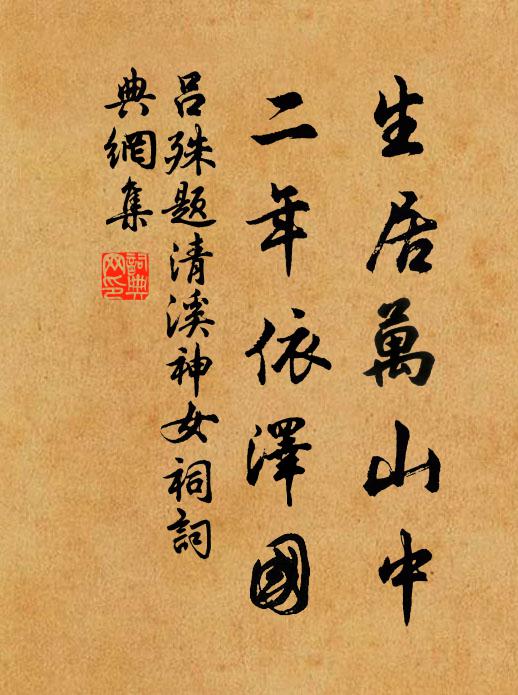 生居萬山中
二年依澤國
呂殊題清溪神女祠詞
典網集
詞典網印